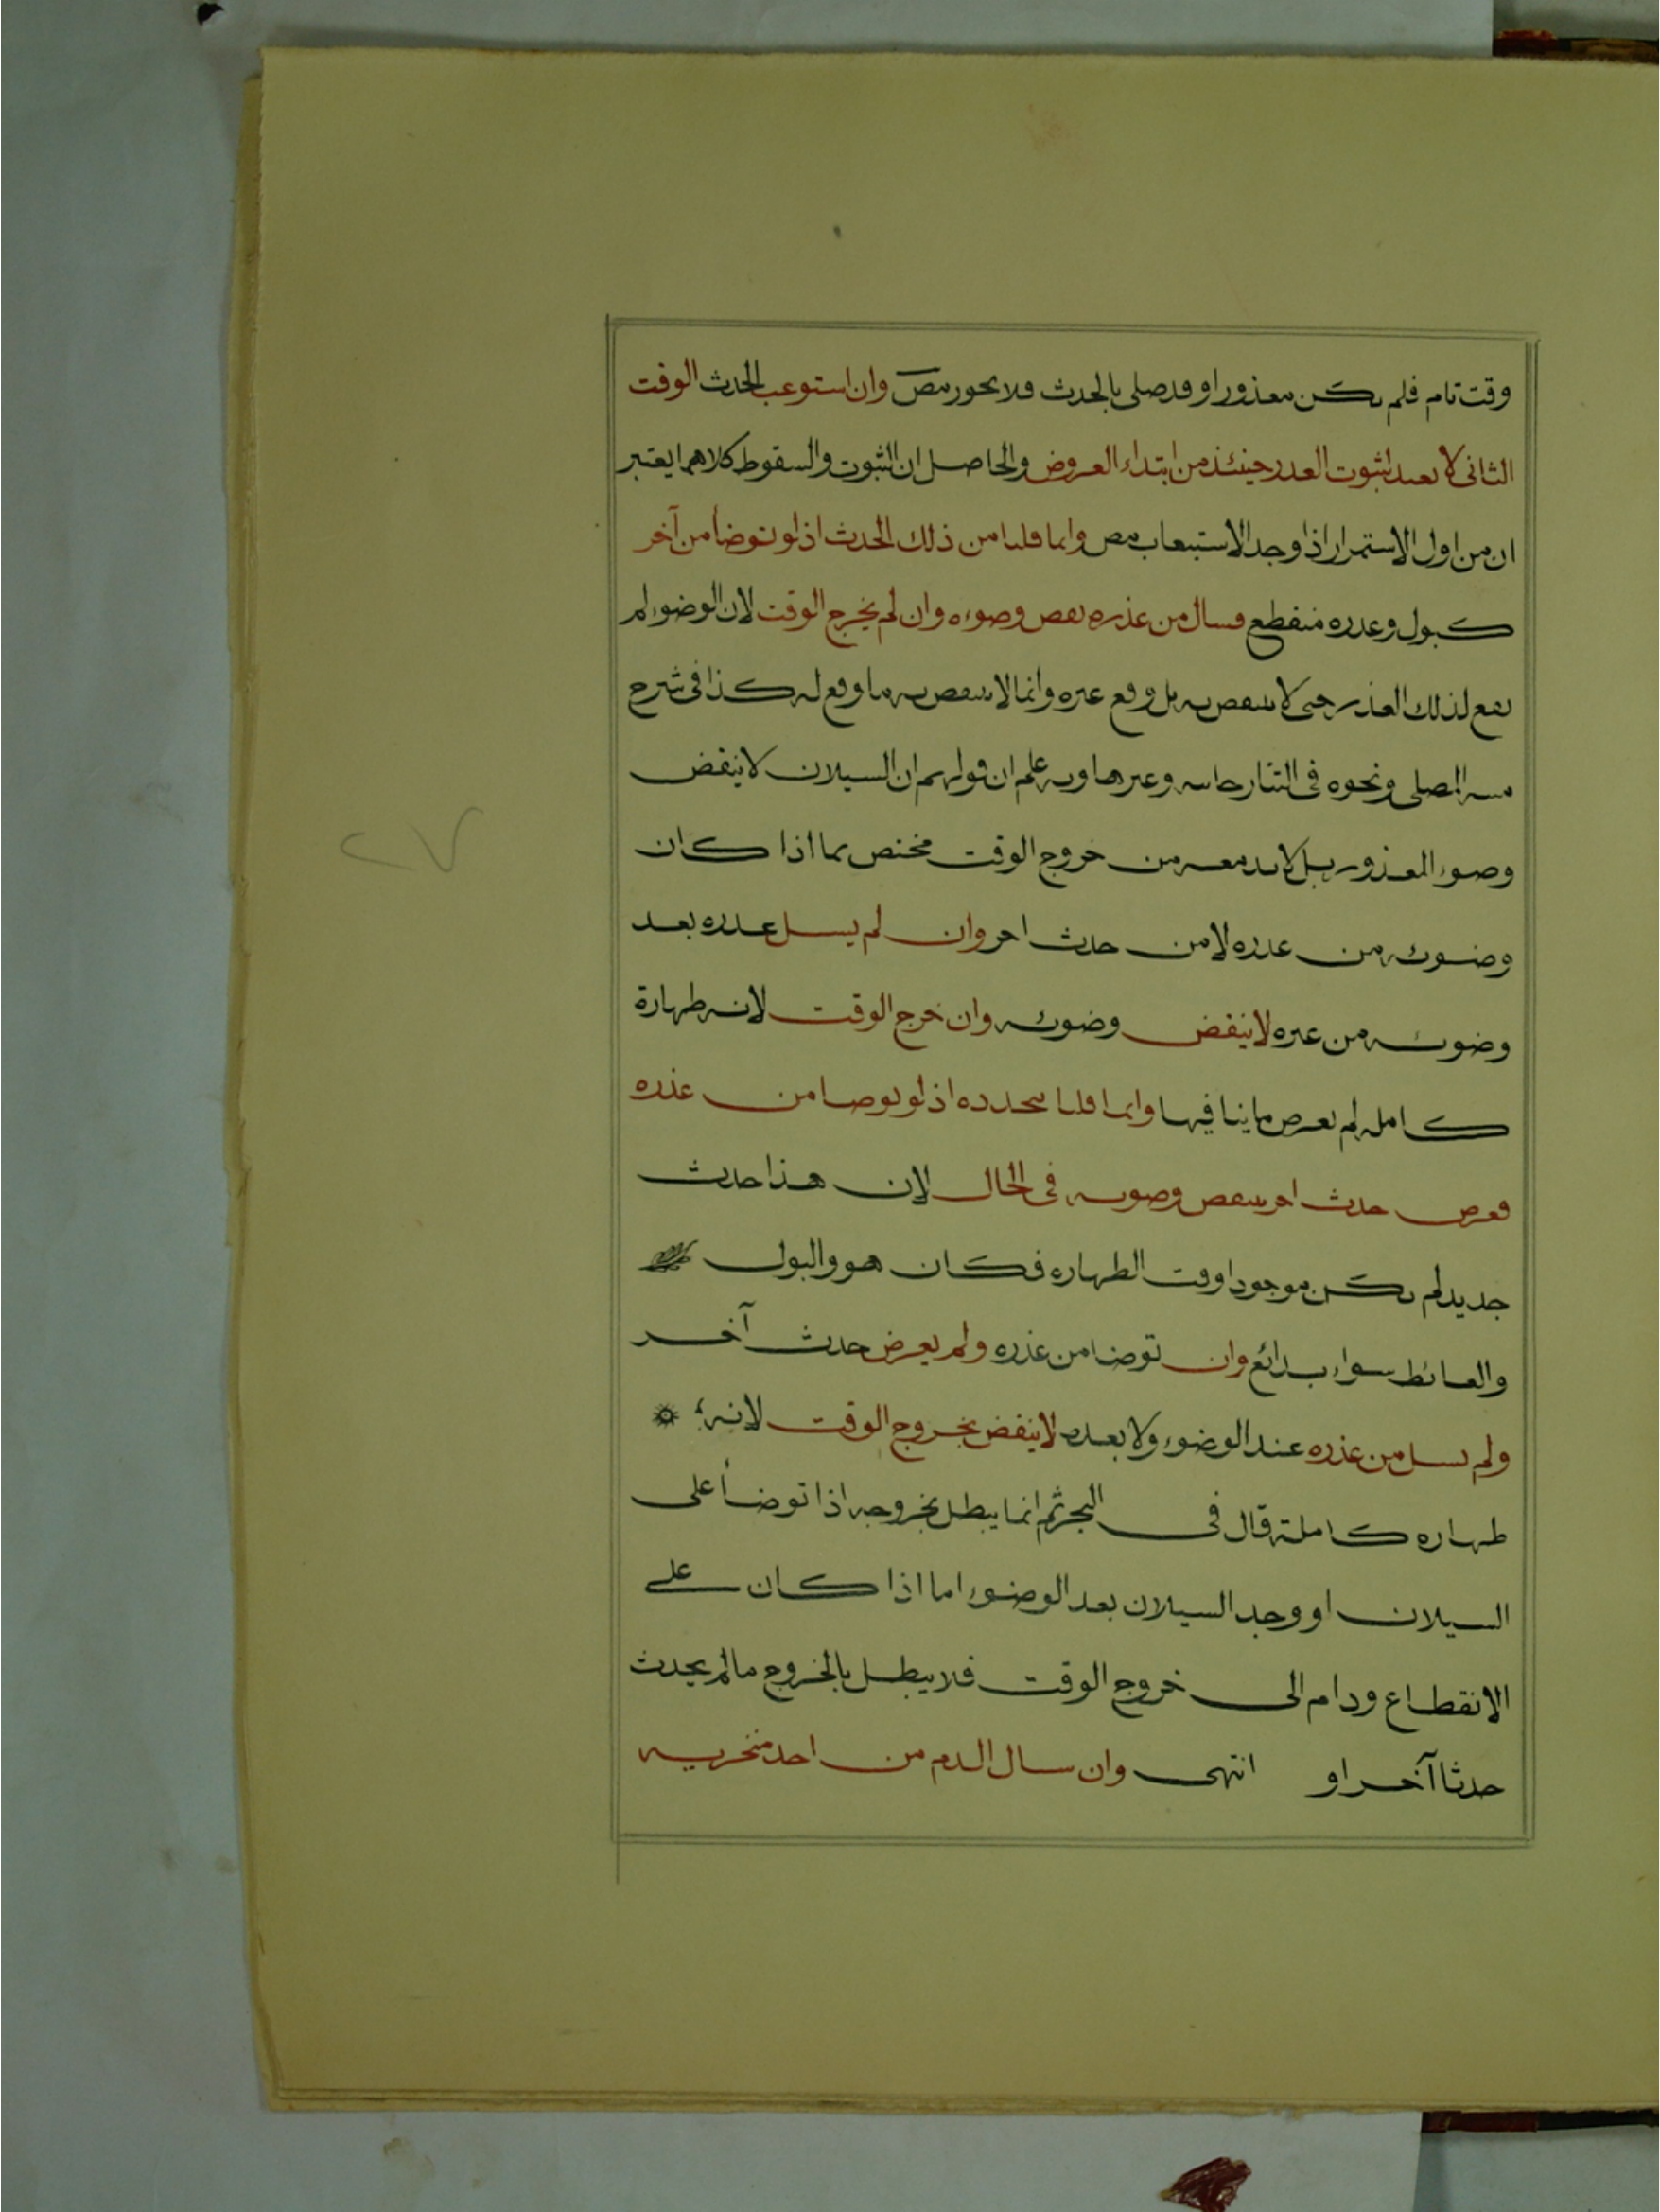 وقت تام فلم يكن معذورا وقد صلى بالحدث فلا يجوز مص وان استوعب الحدث الوقت
الثانى لا يعيد لثبوت العذر حينئذ من ابتداء العروض والحاصل ان الثبوت والسقوط كلاهما يعتبر
ان من اول الاستمرار اذا وجد الاستيعاب مص وانما قلنا من ذلك الحدث اذ لو توضأ من آخر
كبول وعذره منقطع فسال من عذره نقض وضوءه وان لم يخرج الوقت لان الوضوء لم
يقع لذلك العذر حتى لا ينتقض به بل وقع غيره وانما لا ينتقض به ما وقع له كذا فى شرح
منية المصلى ونحوه فى التتارخانية وغيرها وبه علم ان قولهم ان السيلان لا ينقض
وضوء المعذور بل لا بد معه من خروج الوقت مختص بما اذا كان
وضوئه من عذره لا من حدث اخر وان لم يسل عذره بعد
وضوئه من غيره لا ينقض وضوئه وان خرج الوقت لانه طهارة
كاملة لم يعرض ما ينافيها وانما قلنا بتجدده اذ لو توضا من عذره
فعرض حدث اخر ينتقض وضوئه فى الحال لان هذا حدث
جديد لم يكن موجودا وقت الطهارة فكان هو والبول
والغائط سواء بدائع وان توضا من عذره ولم يعرض حدث آخر
ولم يسل من عذره عند الوضوء ولا بعده لا ينقض بخروج الوقت لانه
طهاره كاملة قال فى البحر ثم انما يبطل بخروجه اذا توضأ على
السيلان او وجد السيلان بعد الوضوء اما اذا كان على
الانقطاع ودام الى خروج الوقت فلا يبطل بالخروج مالم يحدث
حدثا آخر او انتهى وان سال الدم من احد منخريه
٢٧